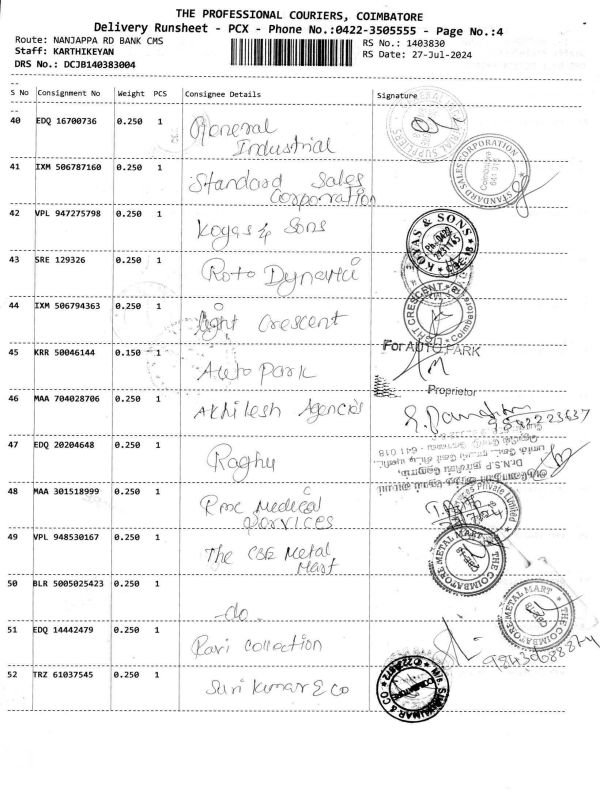 THE PROFESSIONAL COURIERS, COIMBATORE
Delivery Runsheet - PCX - Phone No.:0422-3505555 - Page No.:4
Route: NANJAPPA RD BANK CMS
RS No.: 1403830
Staff: KARTHIKEYAN
RS Date: 27-Jul-2024
DRS No.: DCJB140383004
S No Consignment No Weight PCS Consignee Details Signature
40 EDQ 16700736 0.250 1 General
Industrial
41 IXM 506787160 0.250 1 Standard Sales
Corporation
STANDARD SALES CORPORATION
Coimbatore
641 018
42 VPL 947275798 0.250 1 Kogas & Sons
KOYAS & SONS
43 SRE 129326 0.250 1 Roto Dynamic
44 IXM 506794363 0.250 1 Light Crescent
LIGHT CRESCENT
45 KRR 50046144 0.150 1 Auto Park
For AUTO PARK
Proprietor
46 MAA 704028706 0.250 1 Akhilesh Agencies
9842223637
47 EDQ 20204648 0.250 1 Raghu
641 018
48 MAA 301518999 0.250 1 Rmc Medical
Services
Private Limited
49 VPL 948530167 0.250 1 The CBE Metal
Mart
THE COIMBATORE METAL MART
50 BLR 5005025423 0.250 1 -do-
THE COIMBATORE METAL MART
51 EDQ 14442479 0.250 1 Ravi Collection
52 TRZ 61037545 0.250 1 Suri Kumar & Co